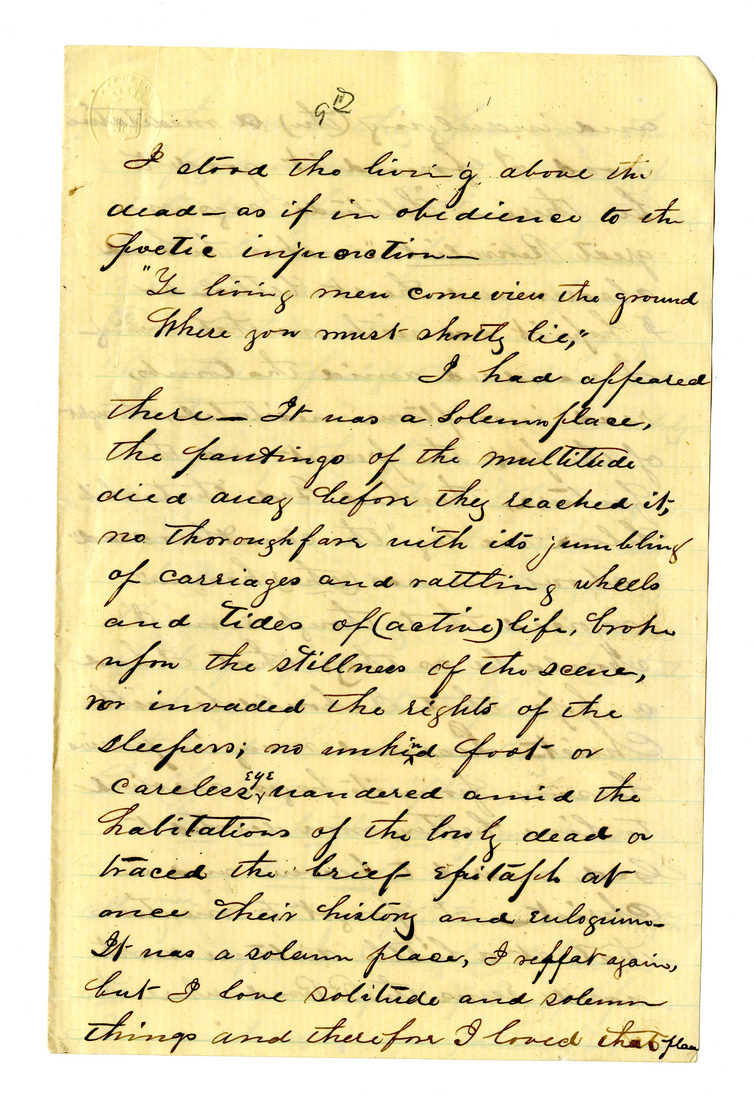 9th
I stood the living above the
dead — as if in obedience to the
poetic injunction —
"Ye living men come view the ground
Where you must shortly lie,"
I had appeared
there — It was a Solemn place,
the pantings of the multitude
died away before they reached it,
no thoroughfare with its jumbling
of carriages and rattling wheels
and tides of (active) life, broke
upon the stillness of the scene,
nor invaded the rights of the
sleepers; no unkind foot or
careless EYE wandered amid the
habitations of the lowly dead or
traced the brief epitaph at
once their history and eulogium —
It was a solemn place, I reppat again,
but I love solitude and solemn
things and therefore I loved that place